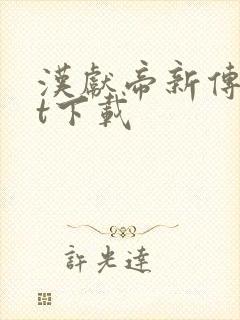 漢獻帝新傳
t下載
許光達